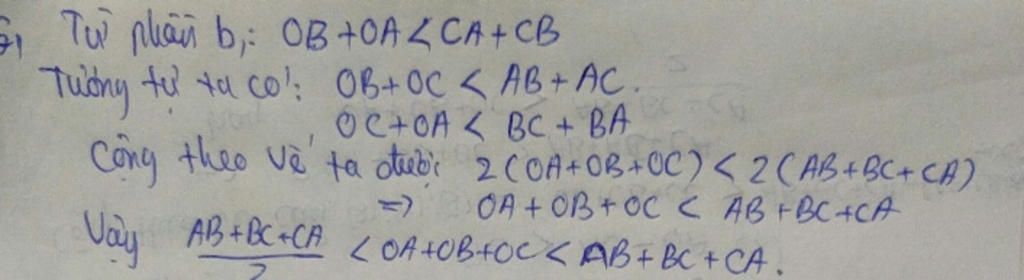 Từ phần b,: OB+OA<CA+CB
Tương tự ta có: OB+OC < AB+AC.
OC+OA < BC+BA
Cộng theo vế ta được 2(OA+OB+OC)<2(AB+BC+CA)
=> OA+OB+OC < AB+BC+CA
Vậy (AB+BC+CA)/2 < OA+OB+OC < AB+BC+CA.